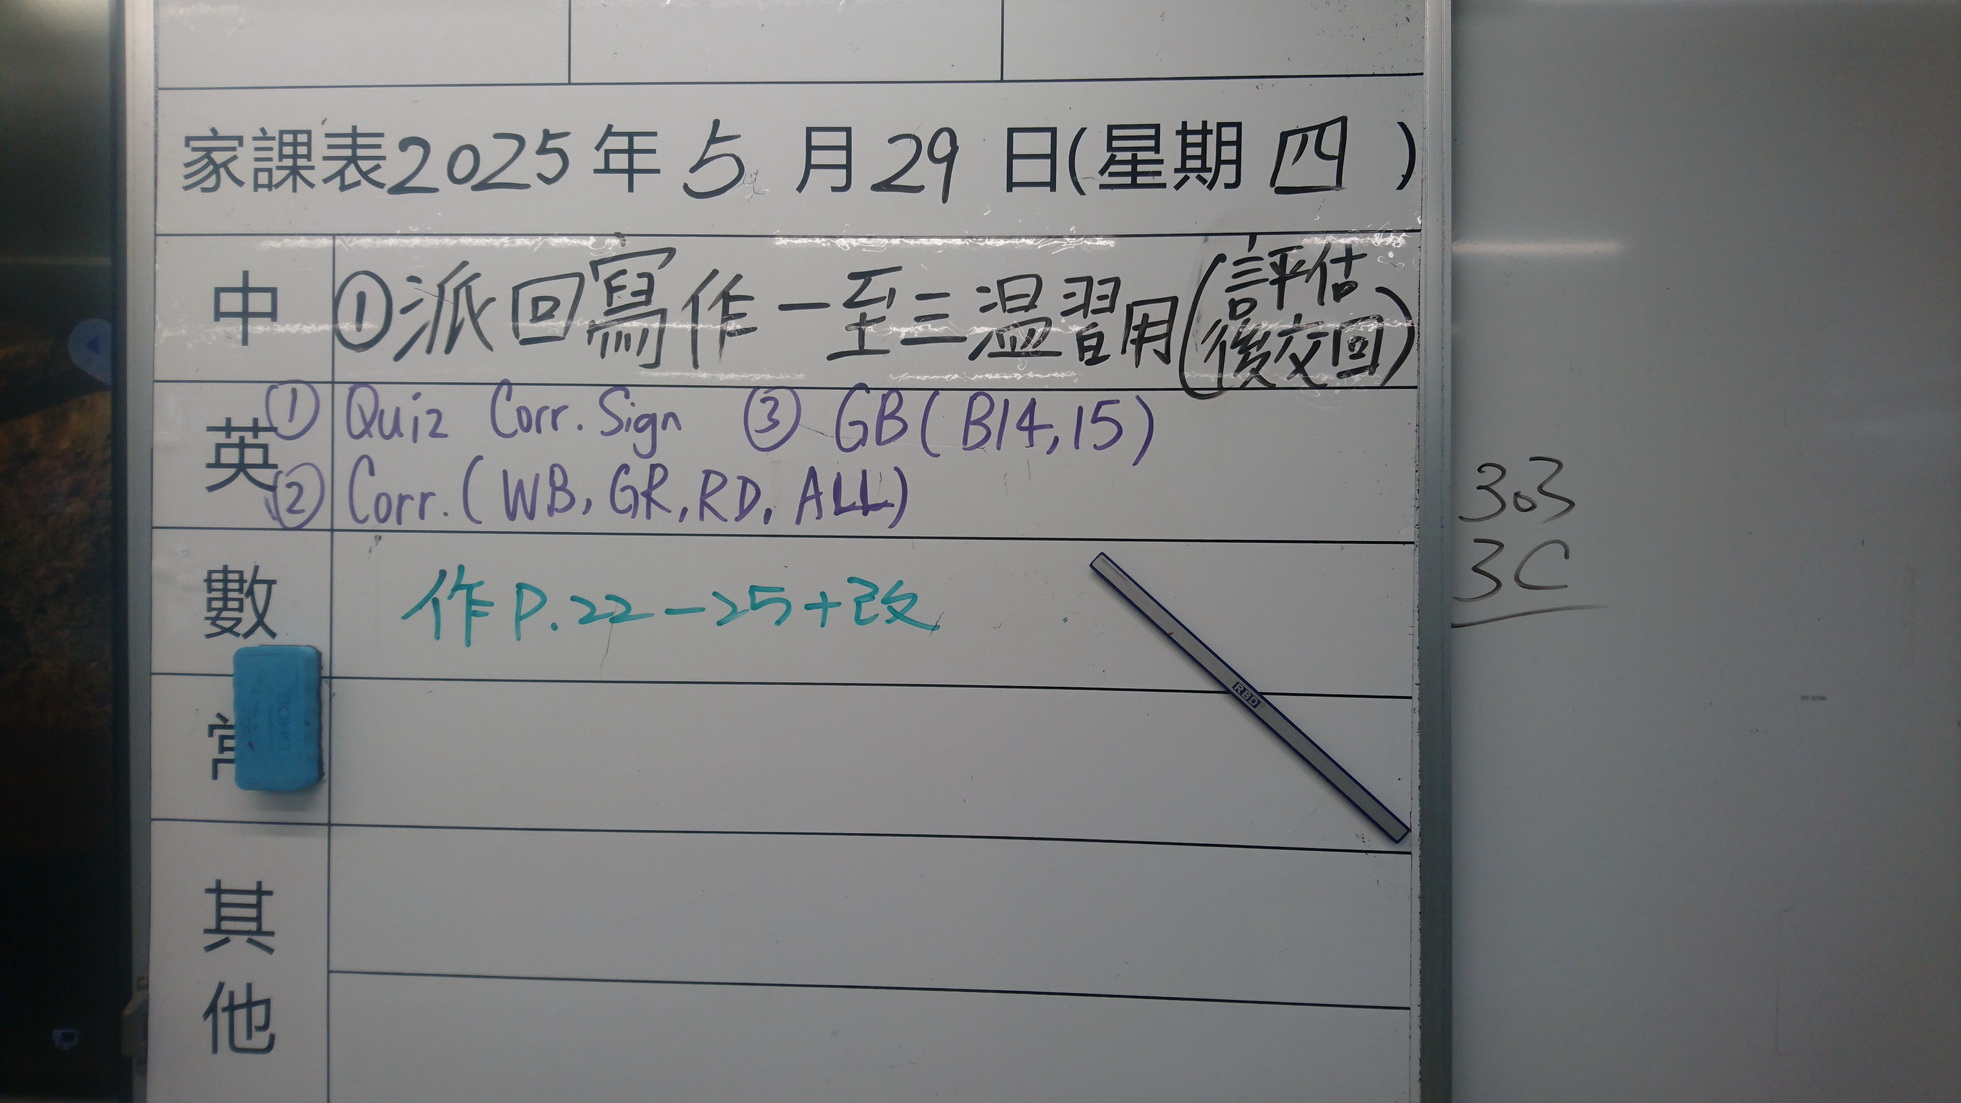 家課表2025年5月29日(星期四)
中 ①派回寫作一至三温習用(評估後交回)
英 ① Quiz Corr. Sign ③ GB(B14,15)
② Corr.(WB, GR, RD, ALL)
數 作P.22-25+改
常
其他
RBD
303
3C